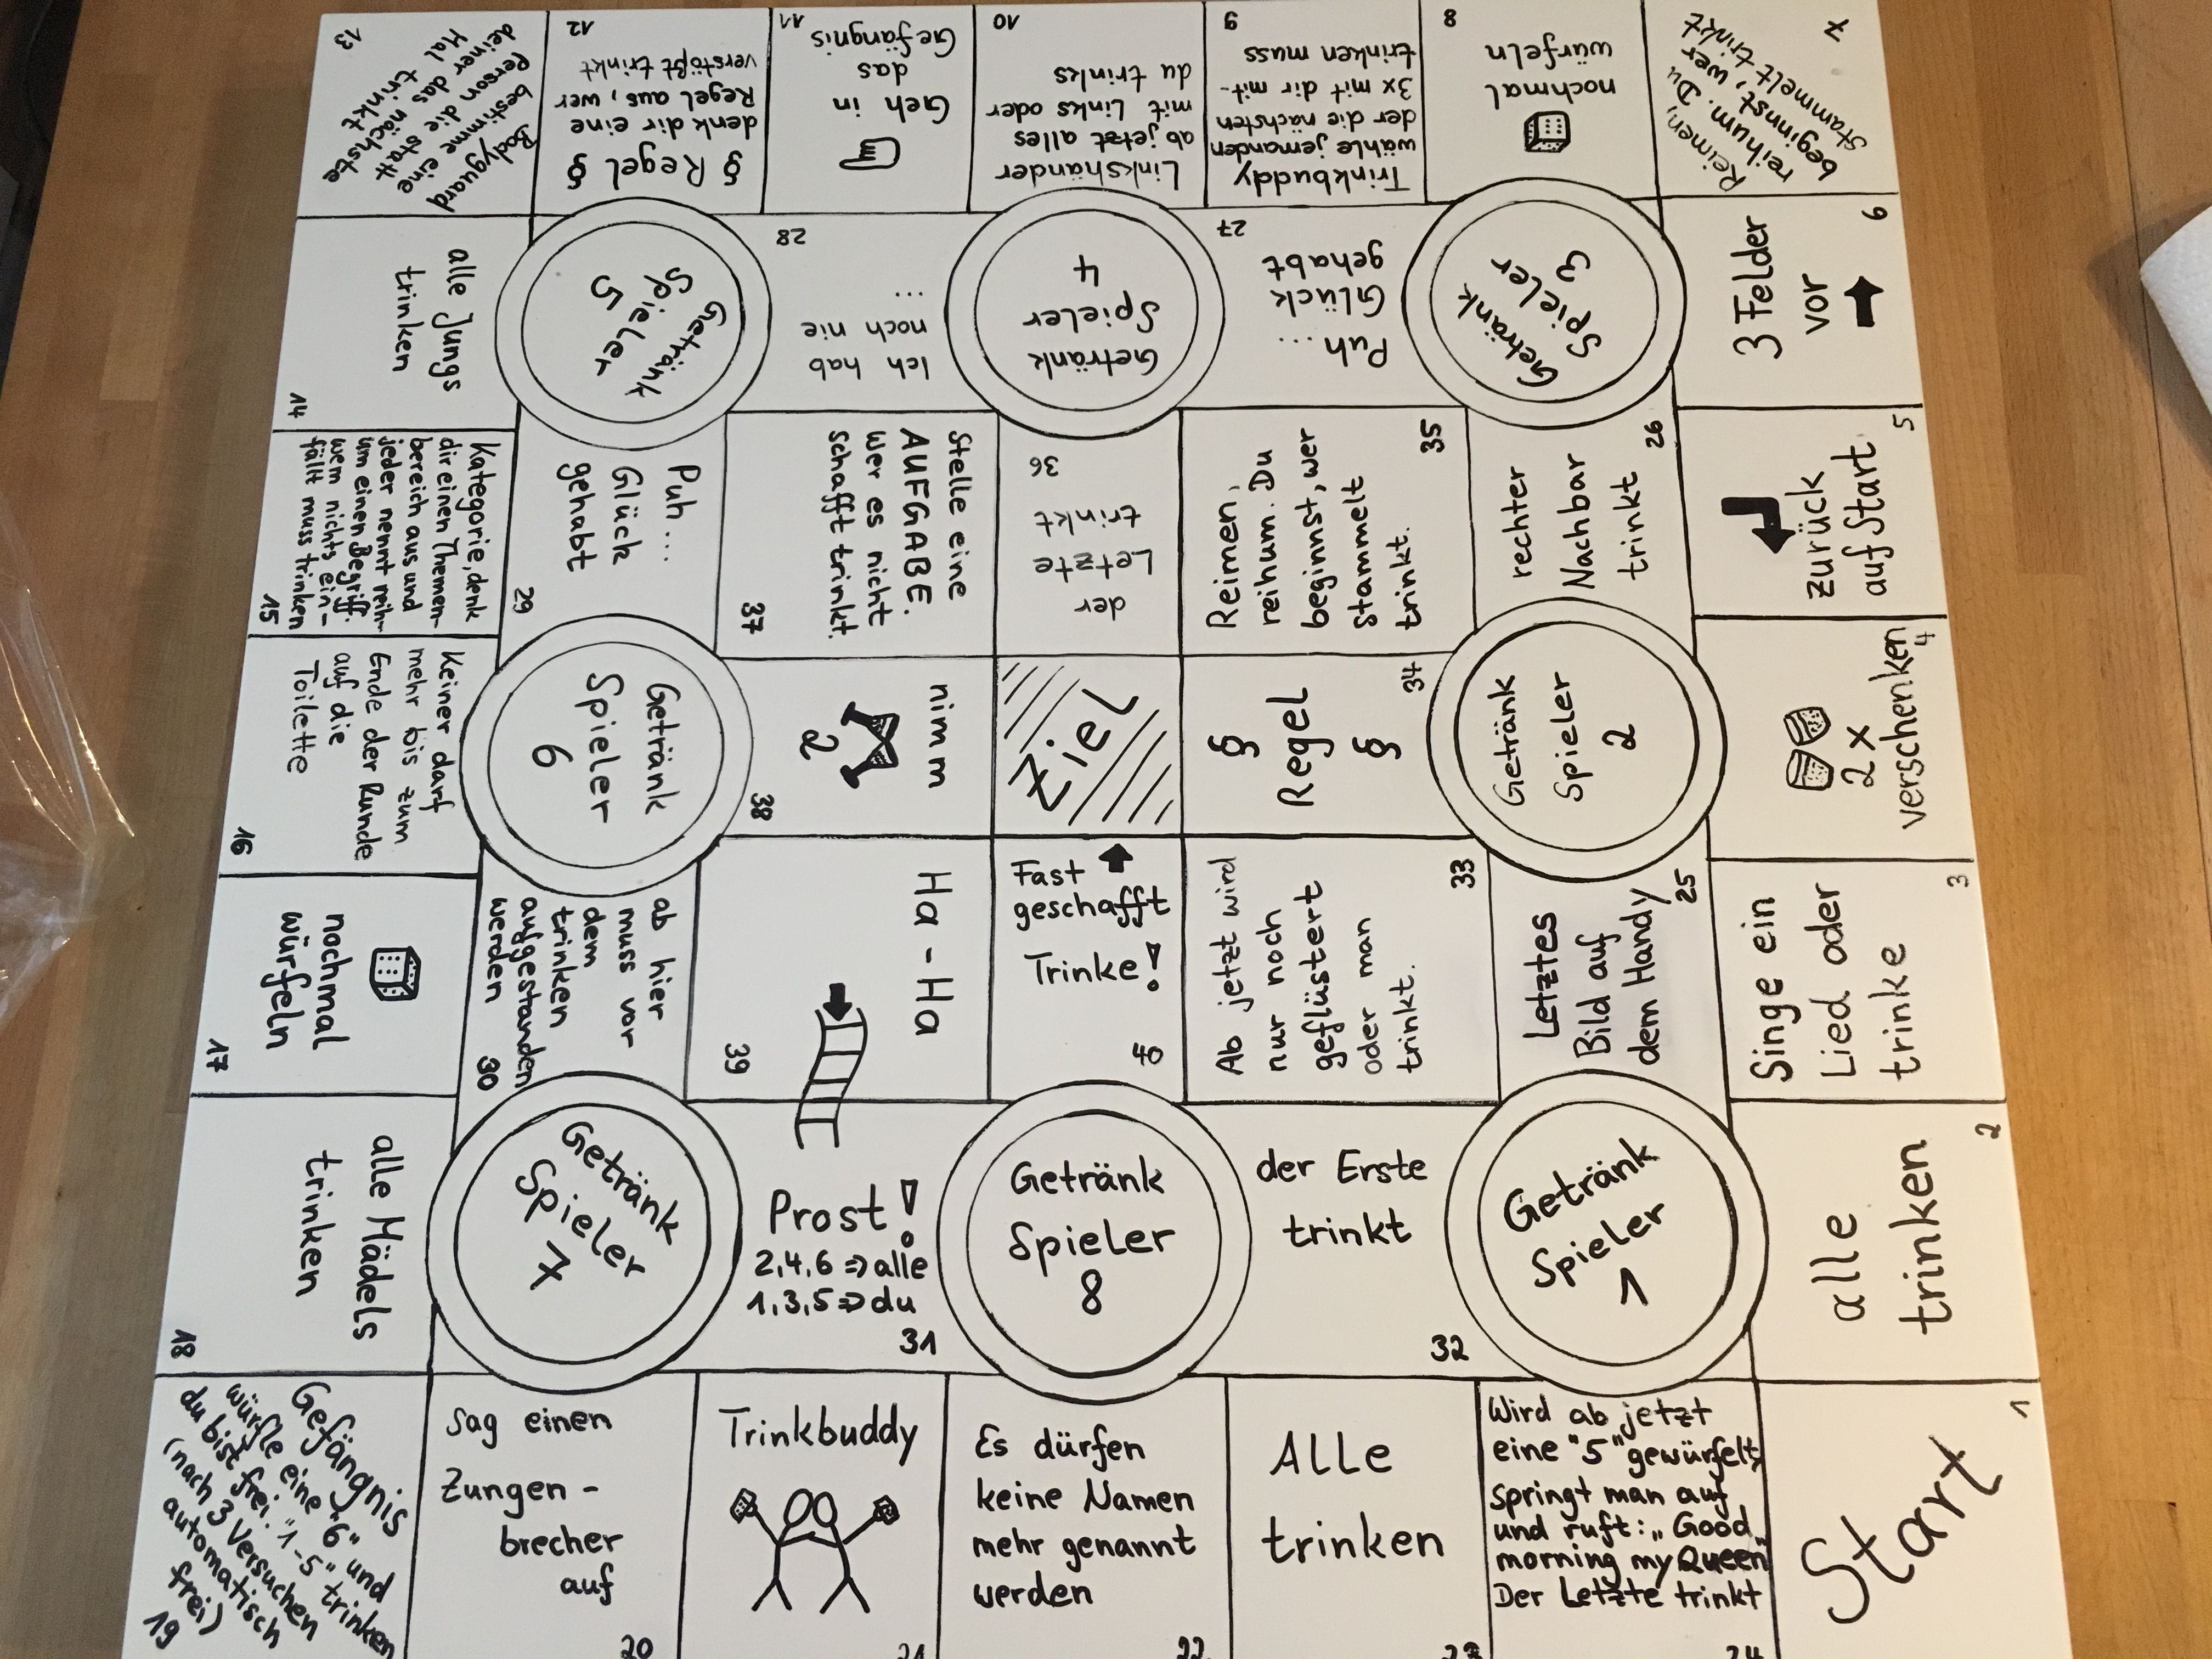 1
Start
2
alle
trinken
3
Singe ein
Lied oder
trinke
4
2x
verschenken
5
zurück
auf Start
6
3 Felder
vor
7
Reimen,
reihum. Du
beginnst, wer
stammelt trinkt
8
nochmal
würfeln
9
Trinkbuddy
wähle jemanden
der die nächsten
3x mit dir mit-
trinken muss
10
Linkshänder
ab jetzt alles
mit Links oder
du trinks
11
Geh in
das
Gefängnis
12
§ Regel §
denk dir eine
Regel aus, wer
verstößt trinkt
13
Bodyguard
bestimme eine
Person die statt
deiner das nächste
Mal trinkt
14
alle Jungs
trinken
15
Kategorie, denk
dir einen Themen-
bereich aus und
jeder nennt reih-
um einen Begriff.
wem nichts ein-
fällt muss trinken
16
Keiner darf
mehr bis zum
Ende der Runde
auf die
Toilette
17
nochmal
würfeln
18
alle Mädels
trinken
19
Gefängnis
würfle eine "6" und
du bist frei. "1-5" trinken
(nach 3 Versuchen
automatisch
frei)
20
Sag einen
Zungen-
brecher
auf
21
Trinkbuddy
22
Es dürfen
keine Namen
mehr genannt
werden
23
ALLE
trinken
24
Wird ab jetzt
eine "5" gewürfelt,
springt man auf
und ruft: „Good
morning my Queen"
Der Letzte trinkt
25
Letztes
Bild auf
dem Handy
26
rechter
Nachbar
trinkt
27
Puh...
Glück
gehabt
28
Ich hab
noch nie
...
29
Puh...
Glück
gehabt
30
ab hier
muss vor
dem
trinken
aufgestanden
werden
31
Prost!
2,4,6 => alle
1,3,5 => du
32
der Erste
trinkt
33
Ab jetzt wird
nur noch
geflüstert
oder man
trinkt.
34
§
Regel
§
35
Reimen,
reihum. Du
beginnst, wer
stammelt
trinkt.
36
der
Letzte
trinkt
37
Stelle eine
AUFGABE.
Wer es nicht
schafft trinkt.
38
nimm
2
39
Ha-Ha
40
Fast
geschafft
Trinke!
Ziel
Getränk
Spieler
1
Getränk
Spieler
2
Getränk
Spieler
3
Getränk
Spieler
4
Getränk
Spieler
5
Getränk
Spieler
6
Getränk
Spieler
7
Getränk
Spieler
8